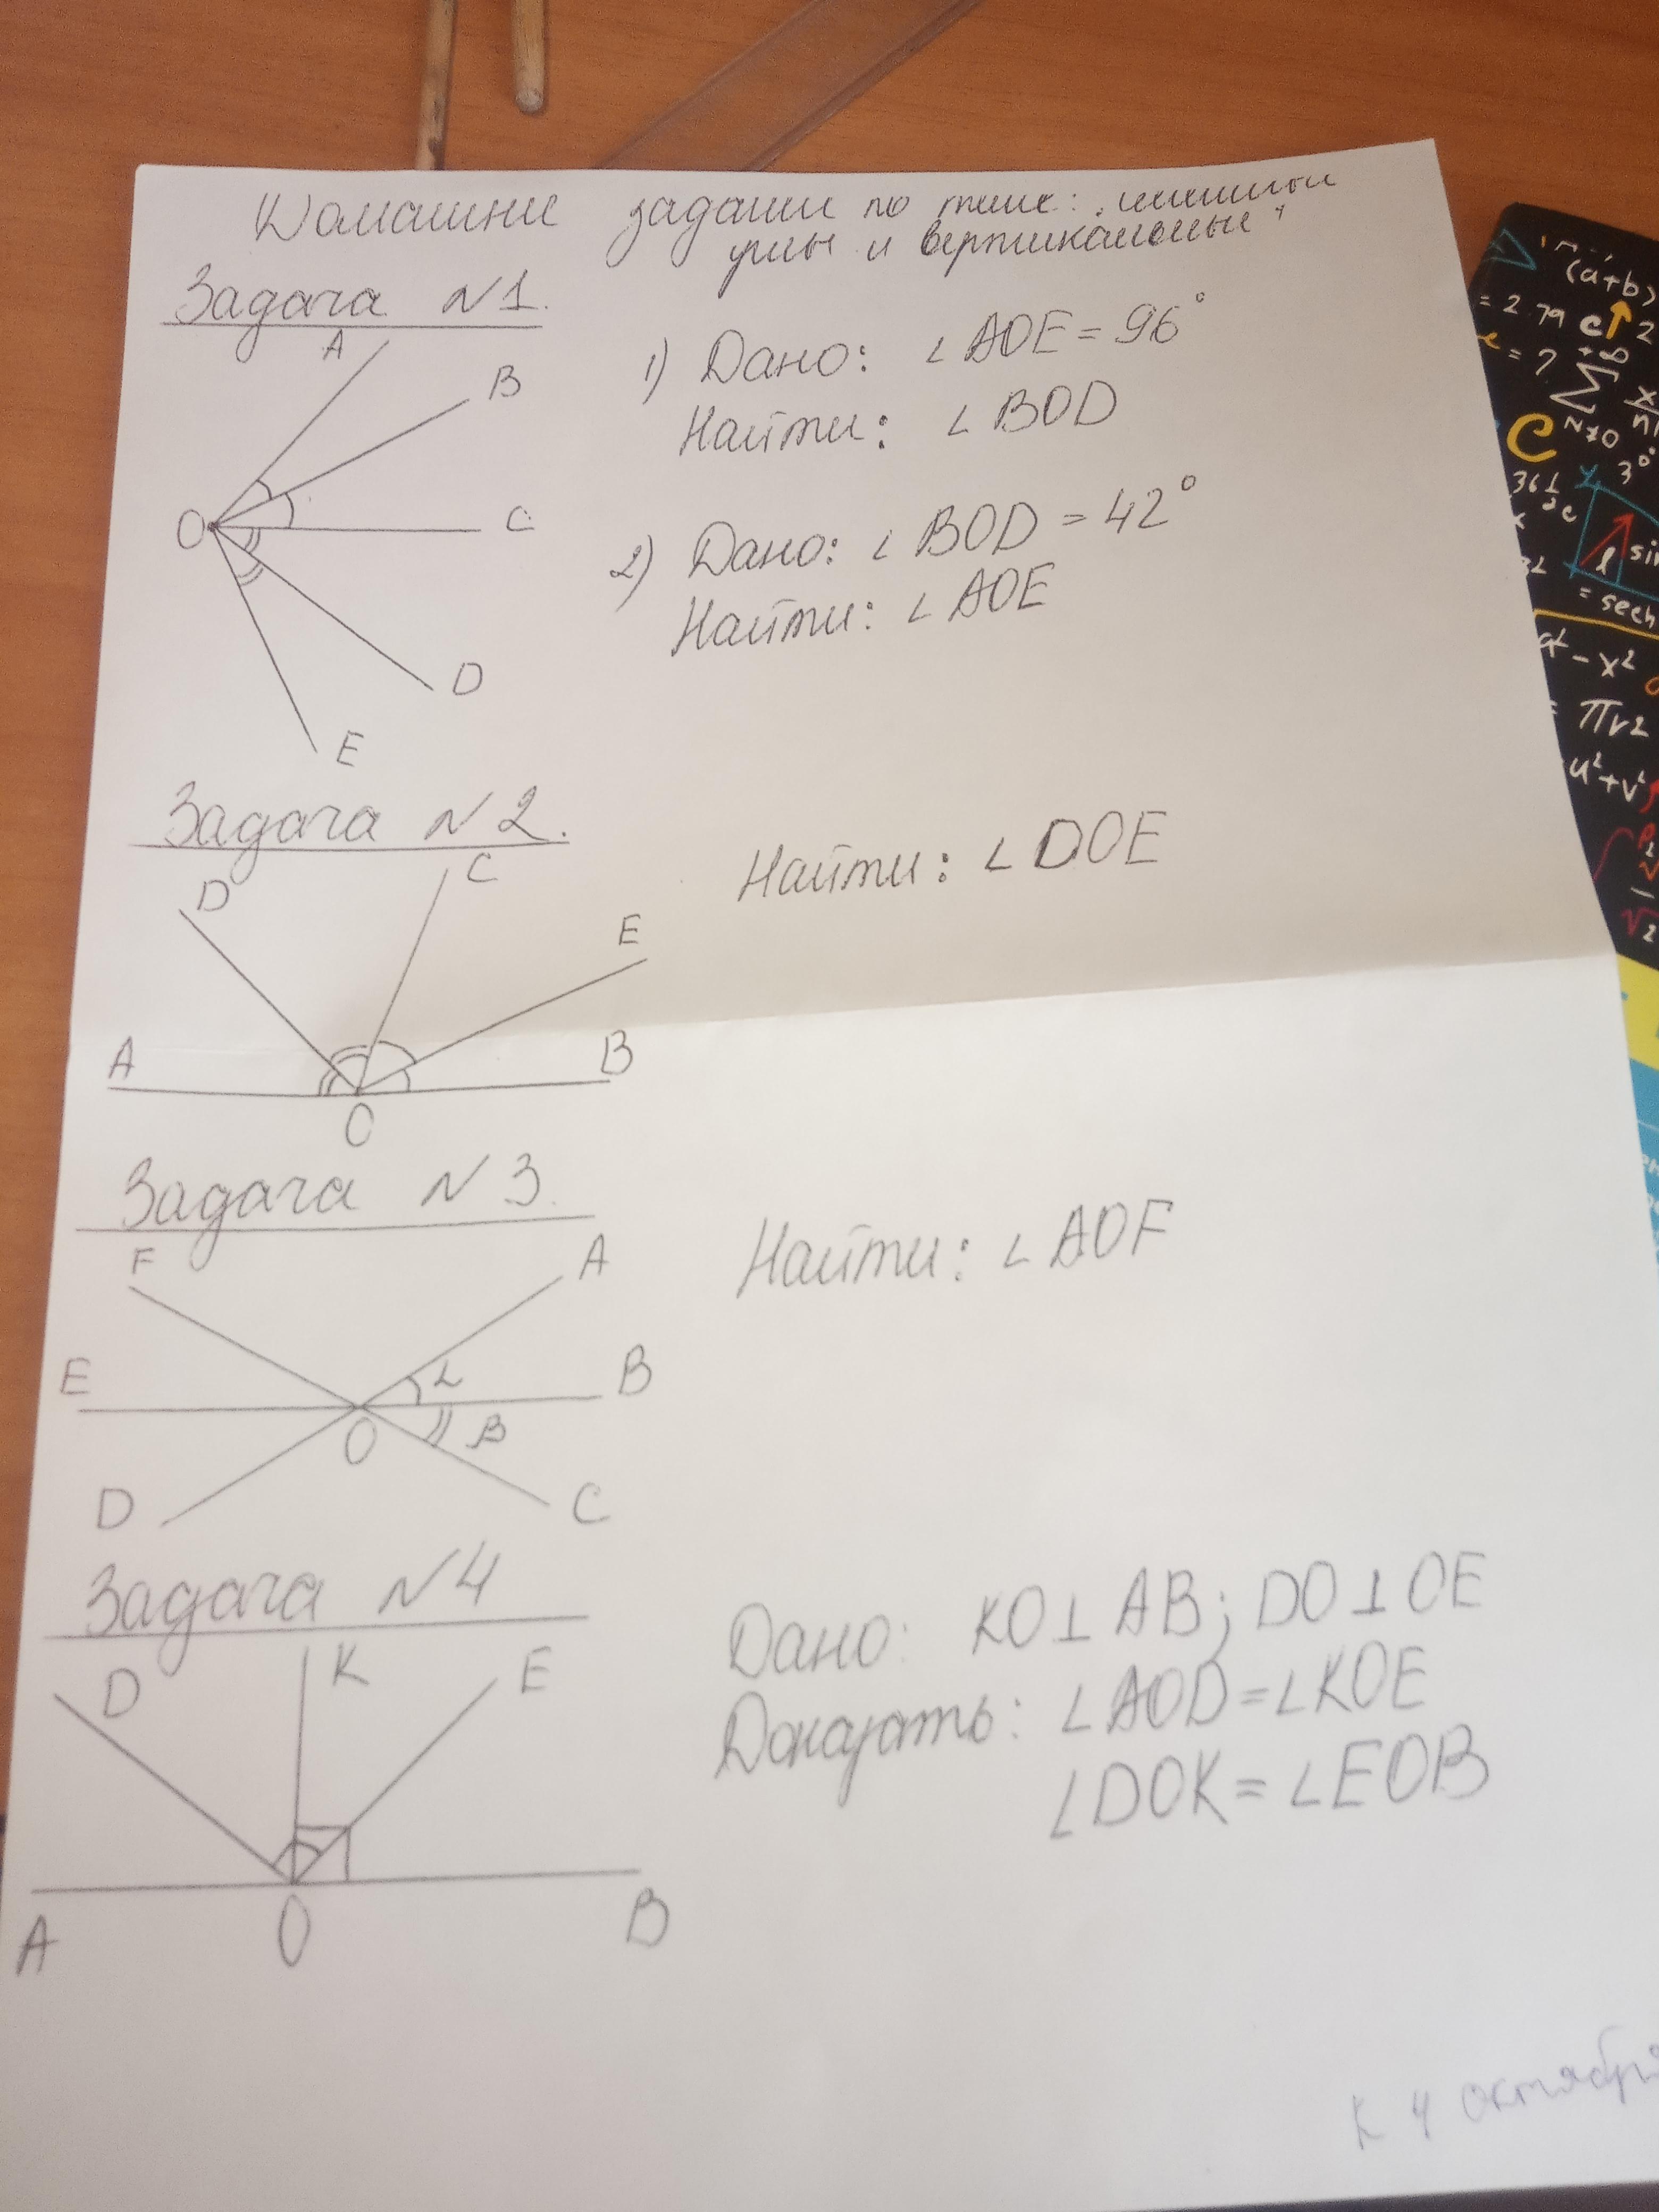 Домашние задание по теме: „смежные
углы и вертикальные"
Задача №1.
A
B
O
C
D
E
1) Дано: ∠AOE = 96°
Найти: ∠BOD
2) Дано: ∠BOD = 42°
Найти: ∠AOE
Задача №2.
D
C
E
A
B
O
Найти: ∠DOE
Задача №3.
F
A
E
B
O
D
C
α
β
Найти: ∠AOF
Задача №4
D
K
E
A
O
B
Дано: KO⊥AB; DO⊥OE
Доказать: ∠AOD=∠KOE
∠DOK=∠EOB
к 4 октября
(a+b)
= 2.79
3°
sin
= sech
πr2
u²+v²